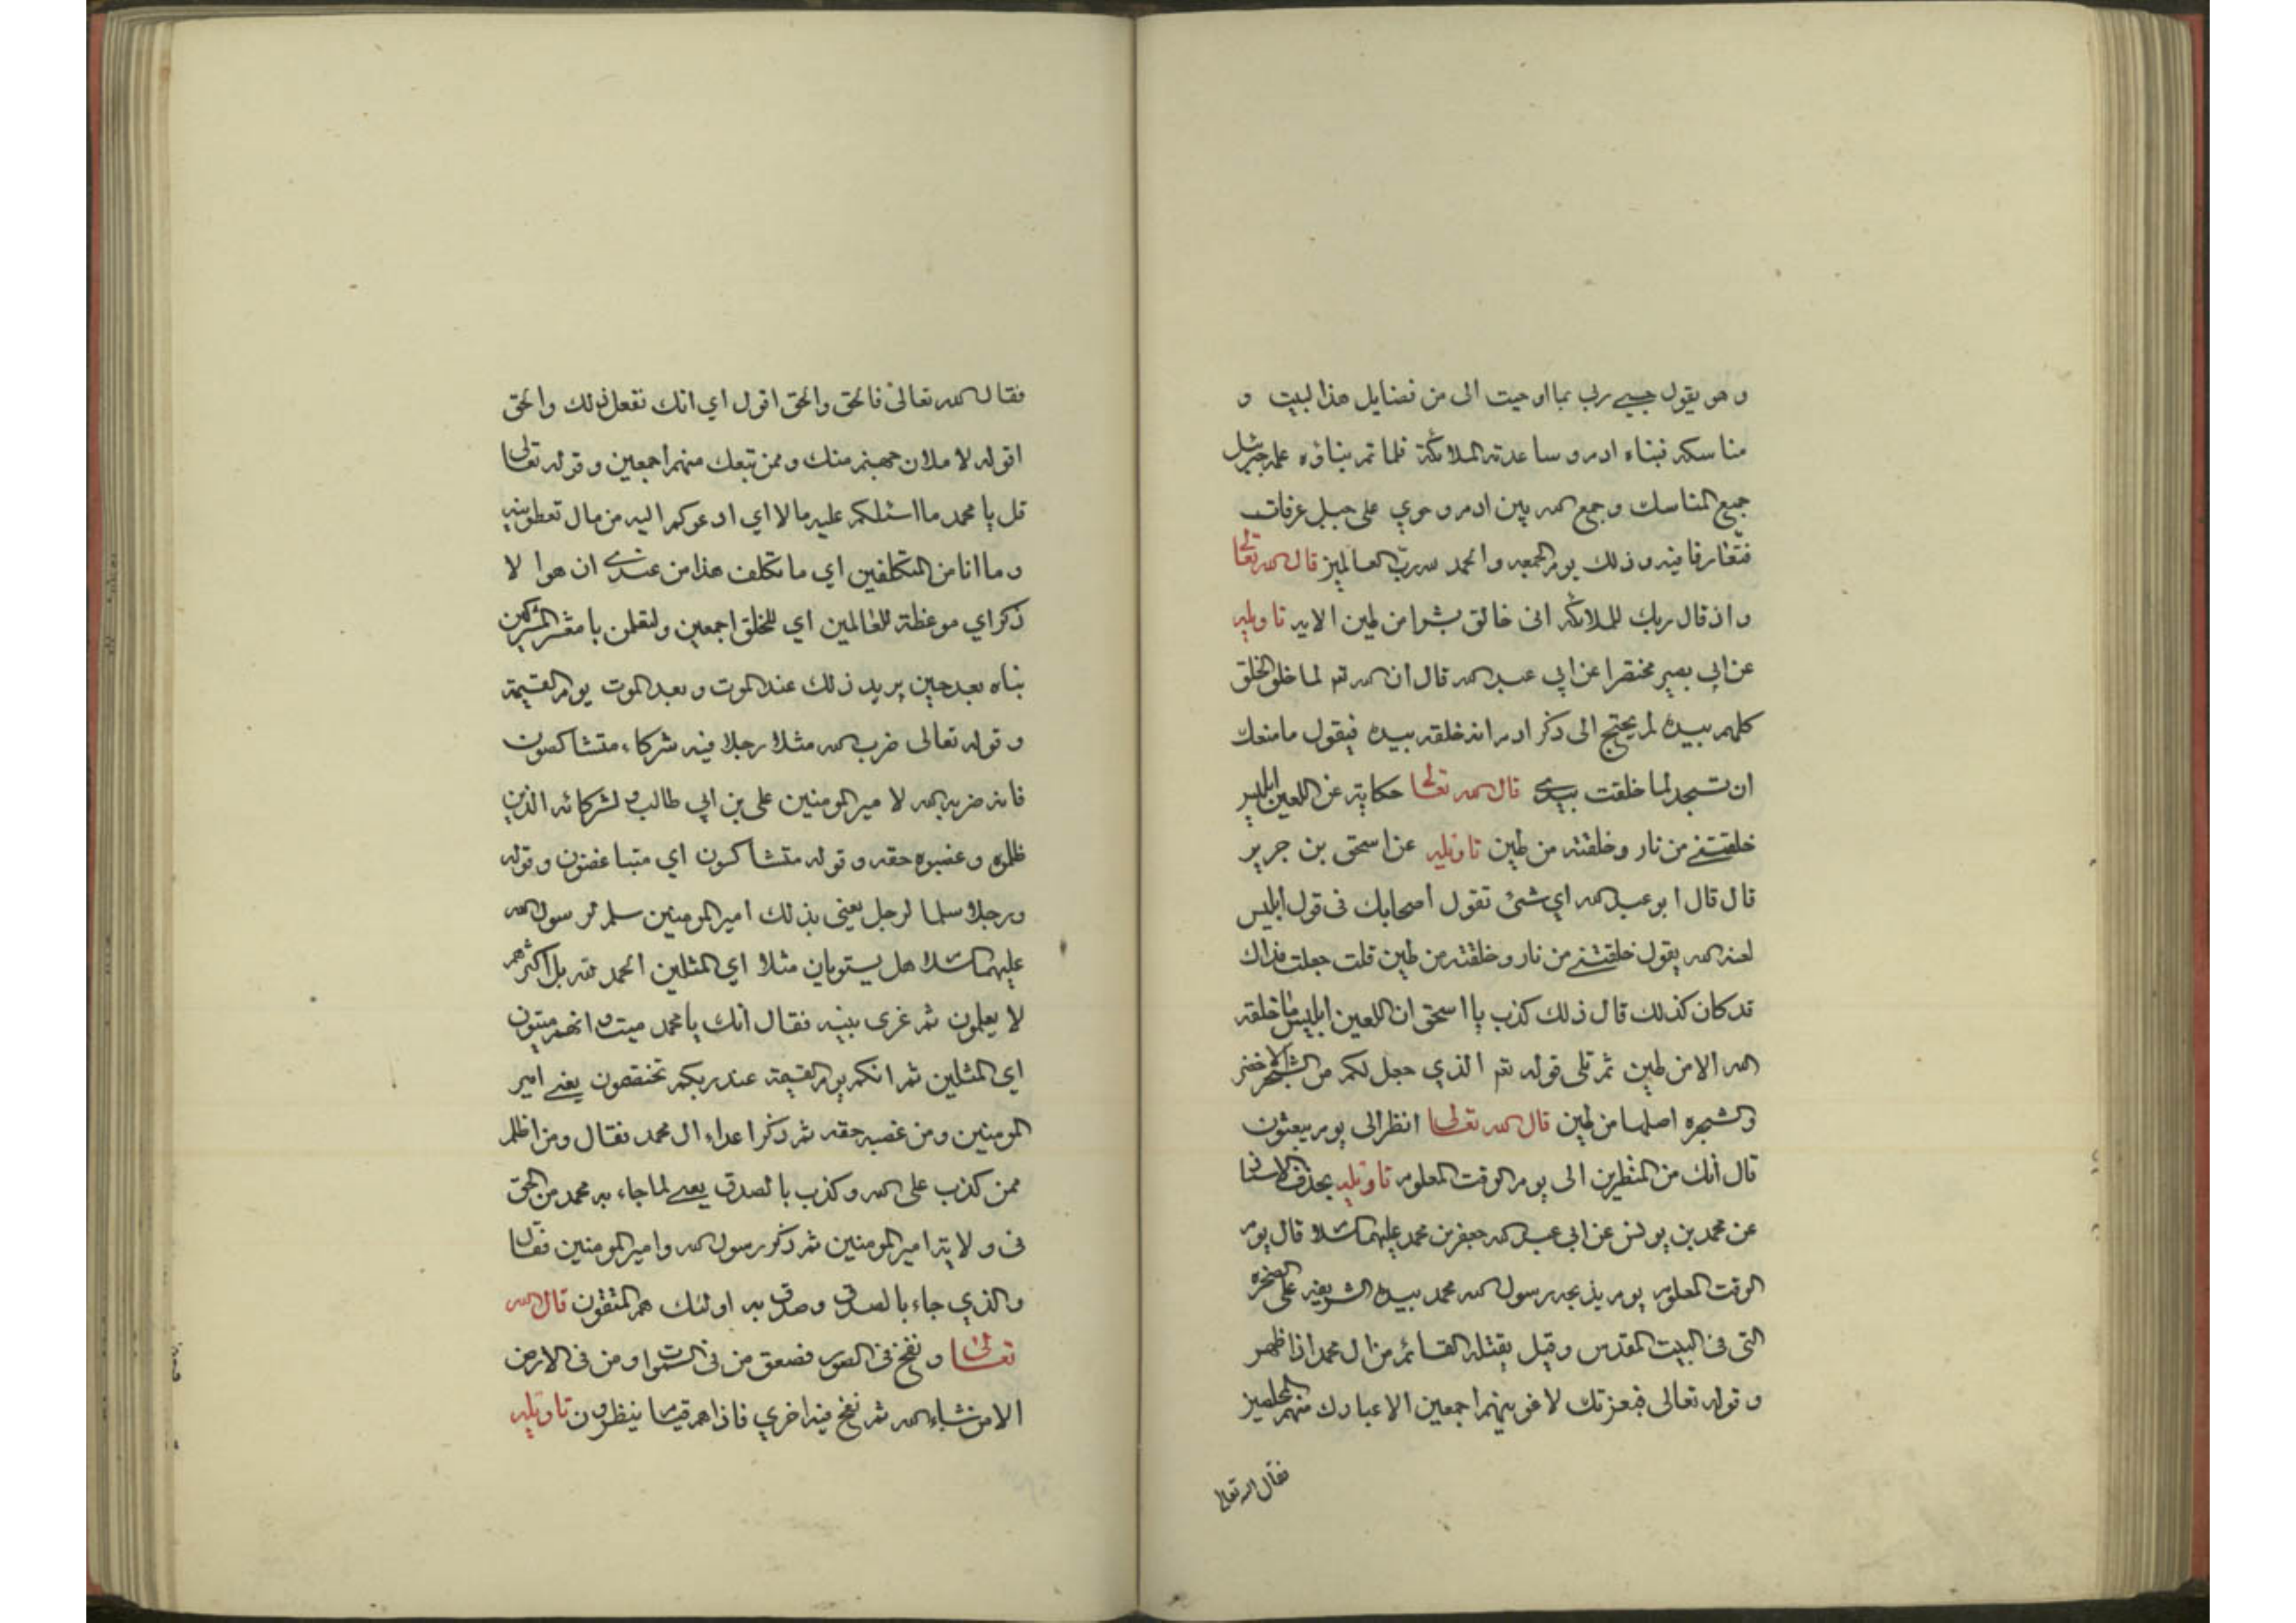 و هو يقول حسبي ربي بما اوحيت الى من فضايل هذا لبيت و
مناسكه فبناه ادم و ساعدته الملائكة فلما تم بناؤه علمه جبرئيل
جميع المناسك و جمع الله بين ادم و حوي على جبل عرفات
فتعارفا فيه و ذلك يوم الجمعه و الحمد لله رب العالمين قال الله تعالى
واذ قال ربك للملائكه انى خالق بشرا من طين الايه تاويله
عن ابي بصير مختصرا عن ابي عبد الله قال ان الله تع لما خلق الخلق
كلهم بيده لم يحتج الى ذكر ادم انه خلقه بيده فيقول مامنعك
ان تسجد لما خلقت بيدي قال الله تعالى حكاية عن اللعين ابليس
خلقتني من نار و خلقته من طين تاويله عن اسحق بن جرير
قال قال ابو عبد الله اي شئ تقول اصحابك فى قول ابليس
لعنه الله يقول خلقتني من نار و خلقته من طين قلت جعلت فداك
قد كان كذلك قال ذلك كذب يا اسحق ان اللعين ابليس ما خلقه
الله الا من طين ثم تلى قوله تع الذي جعل لكم من الشجر الاخضر
والشجره اصلها من طين قال الله تعالى انظر الى يوم يبعثون
قال انك من المنظرين الى يوم الوقت المعلوم تاويله بحذف الاسناد
عن محمد بن يونس عن ابي عبد الله جعفر بن محمد عليهما السلام قال يوم
الوقت المعلوم يوم يذبحه رسول الله محمد بيده الشريفه على الصخره
التى فى البيت المقدس و قيل يقتله القائم من ال محمد اذا ظهر
و قوله تعالى فبعزتك لاغوينهم اجمعين الا عبادك منهم المخلصين
فقال الله تعالى
فقال الله تعالى فالحق والحق اقول اي انك تفعل ذلك والحق
اقوله لاملان جهنم منك و ممن تبعك منهم اجمعين و قوله تعالى
قل يا محمد ما اسئلكم عليه مالا اي ادعوكم اليه من مال تعطونيه
و ما انا من المتكلفين اي ما تكلف هذا من عندي ان هوا لا
ذكر اي موعظة للعالمين اي للخلق اجمعين و لتعلمن يا معشر المشركين
نباه بعد حين يريد ذلك عند الموت و بعد الموت يوم القيمة
و قوله تعالى ضرب الله مثلا رجلا فيه شركاء متشاكسون
فانه ضربه الله لامير المومنين على بن ابي طالب و لشركائه الذين
ظلموه و غصبوه حقه و قوله متشاكسون اي متباغضون و قوله
و رجلا سلما لرجل يعني بذلك امير المومنين سلم لرسول الله
عليهما السلام هل يستويان مثلا اي المثلين الحمد لله بل اكثرهم
لا يعلمون ثم غرى بنبيه فقال انك يا محمد ميت و انهم ميتون
اي المثلين ثم انكم يوم القيمة عند ربكم تختصمون يعني امير
المومنين و من غصبه حقه ثم ذكر اعداء ال محمد فقال و من اظلم
ممن كذب على الله و كذب بالصدق يعنى لما جاء به محمد من الحق
فى ولاية امير المومنين ثم ذكر رسول الله و امير المومنين فقال
و الذي جاء بالصدق و صدق به اولئك هم المتقون قال الله
تعالى و نفخ فى الصور فصعق من فى السموات و من فى الارض
الا من شاء الله ثم نفخ فيه اخري فاذا هم قيام ينظرون تاويله